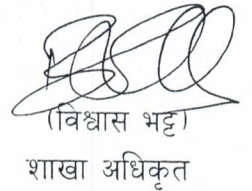 (विश्वास भट्ट)
शाखा अधिकृत